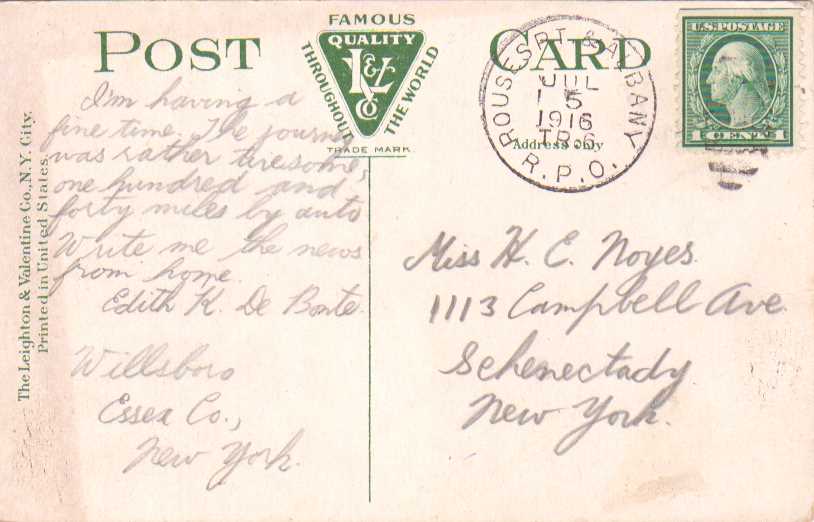 POST CARD
FAMOUS
QUALITY
THROUGHOUT THE WORLD
L & V Co
TRADE MARK
ROUSES PT. & ALBANY
JUL
5
1916
TR 6
R.P.O.
Address only
U.S. POSTAGE
1 CENT 1
The Leighton & Valentine Co., N.Y. City.
Printed in United States.
I'm having a
fine time. The journey
was rather tiresome,
one hundred and
forty miles by auto
Write me the news
from home.
Edith K. De Bonte.
Willsboro
Essex Co.,
New York.
Miss H. E. Noyes.
1113 Campbell Ave.
Schenectady
New York.